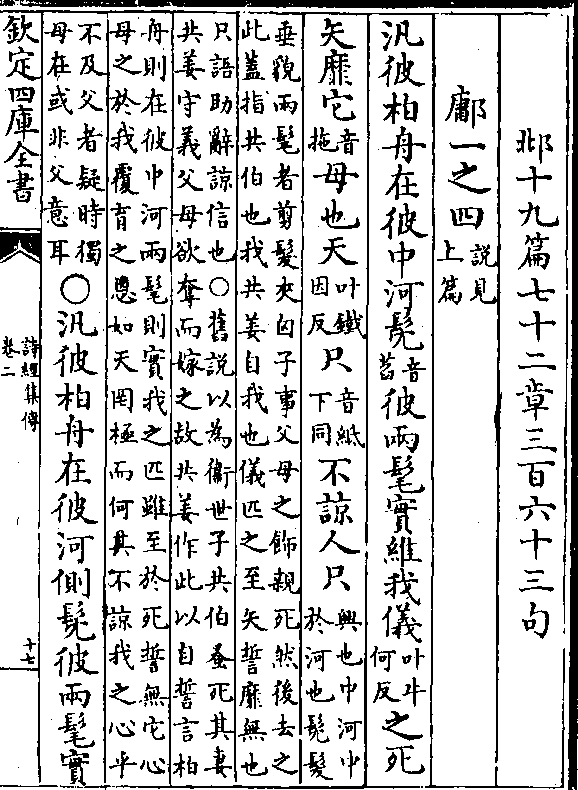 邶十九篇七十二章三百六十三句
鄘一之四説見上篇
汎彼柏舟在彼中河髧音萏彼兩髦實維我儀叶牛何反之死
矢靡它音拖母也天叶鐵因反只音紙下同不諒人只興也中河中於河也髧髮
垂貌兩髦者剪髮夾囟子事父母之飾親死然後去之
此蓋指共伯也我共姜自我也儀匹之至矢誓靡無也
只語助辭諒信也○舊説以為衛世子共伯蚤死其妻
共姜守義父母欲奪而嫁之故共姜作此以自誓言柏
舟則在彼中河兩髦則實我之匹雖至於死誓無它心
母之於我覆育之恩如天罔極而何其不諒我之心乎
不及父者疑時獨母在或非父意耳○汎彼柏舟在彼河側髧彼兩髦實
欽定四庫全書
詩經集傳
卷二
十七